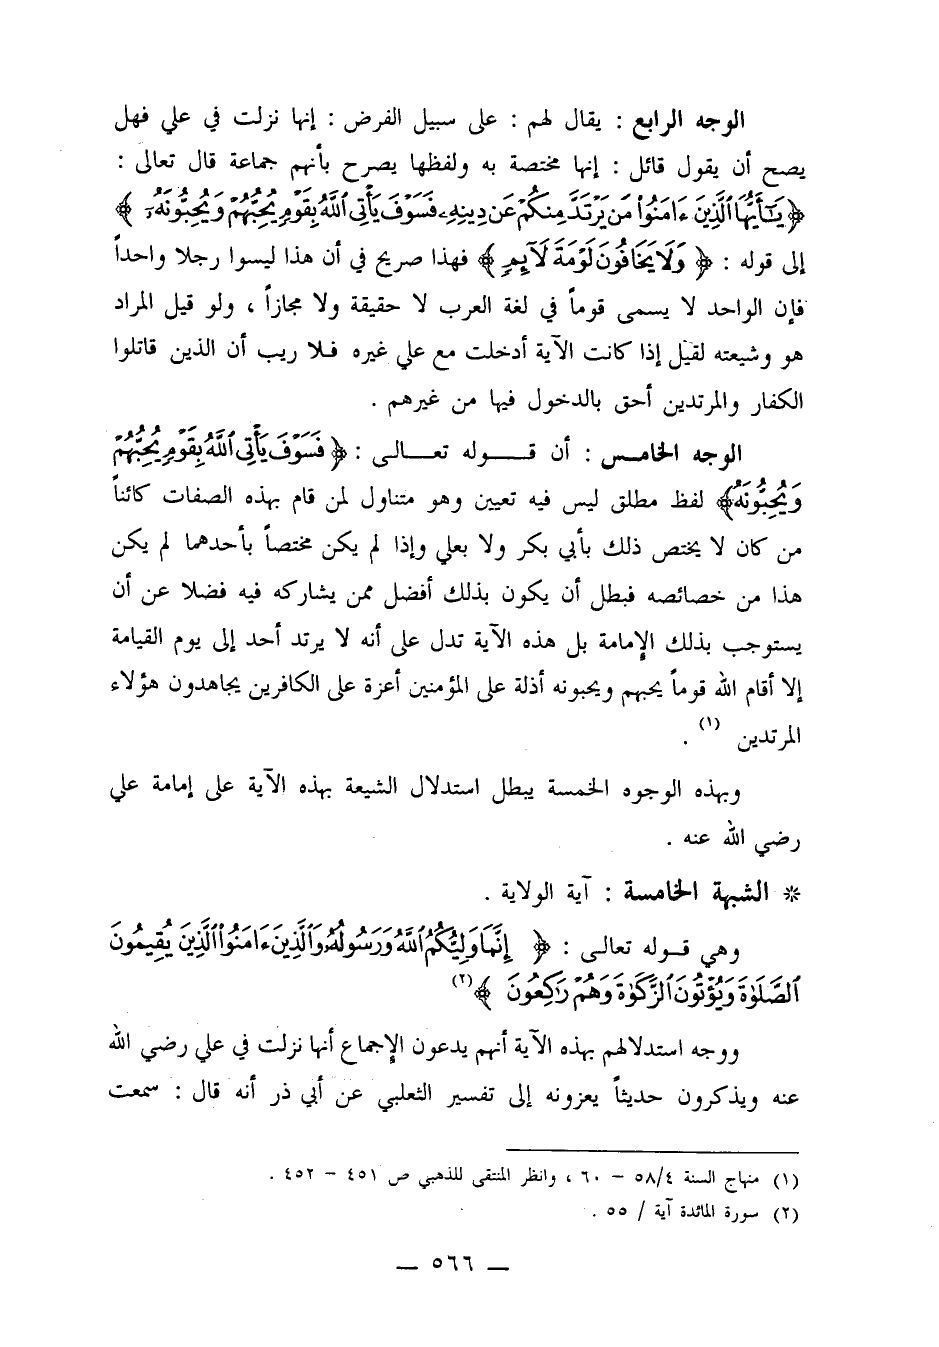 الوجه الرابع : يقال لهم : على سبيل الفرض : إنها نزلت في علي فهل
يصح أن يقول قائل : إنها مختصة به ولفظها يصرح بأنهم جماعة قال تعالى :
﴿ يَٰٓأَيُّهَا ٱلَّذِينَ ءَامَنُواْ مَن يَرْتَدَّ مِنكُمْ عَن دِينِهِۦ فَسَوْفَ يَأْتِى ٱللَّهُ بِقَوْمٍ يُحِبُّهُمْ وَيُحِبُّونَهُۥٓ ﴾
إلى قوله : ﴿ وَلَا يَخَافُونَ لَوْمَةَ لَآئِمٍ ﴾ فهذا صريح في أن هذا ليسوا رجلا واحداً
فإن الواحد لا يسمى قوماً في لغة العرب لا حقيقة ولا مجازاً ، ولو قيل المراد
هو وشيعته لقيل إذا كانت الآية أدخلت مع علي غيره فلا ريب أن الذين قاتلوا
الكفار والمرتدين أحق بالدخول فيها من غيرهم .
الوجه الخامس : أن قوله تعالى : ﴿ فَسَوْفَ يَأْتِى ٱللَّهُ بِقَوْمٍ يُحِبُّهُمْ
وَيُحِبُّونَهُ ﴾ لفظ مطلق ليس فيه تعيين وهو متناول لمن قام بهذه الصفات كائناً
من كان لا يختص ذلك بأبي بكر ولا بعلي وإذا لم يكن مختصاً بأحدهما لم يكن
هذا من خصائصه فبطل أن يكون بذلك أفضل ممن يشاركه فيه فضلا عن أن
يستوجب بذلك الإمامة بل هذه الآية تدل على أنه لا يرتد أحد إلى يوم القيامة
إلا أقام الله قوماً يحبهم ويحبونه أذلة على المؤمنين أعزة على الكافرين يجاهدون هؤلاء
المرتدين (١) .
وبهذه الوجوه الخمسة يبطل استدلال الشيعة بهذه الآية على إمامة علي
رضي الله عنه .
* الشبهة الخامسة : آية الولاية .
وهي قوله تعالى : ﴿ إِنَّمَا وَلِيُّكُمُ ٱللَّهُ وَرَسُولُهُۥ وَٱلَّذِينَ ءَامَنُواْ ٱلَّذِينَ يُقِيمُونَ
ٱلصَّلَوٰةَ وَيُؤْتُونَ ٱلزَّكَوٰةَ وَهُمْ رَٰكِعُونَ ﴾ (٢)
ووجه استدلالهم بهذه الآية أنهم يدعون الإجماع أنها نزلت في علي رضي الله
عنه ويذكرون حديثاً يعزونه إلى تفسير الثعلبي عن أبي ذر أنه قال : سمعت
(١) منهاج السنة ٥٨/٤ – ٦٠ ، وانظر المنتقى للذهبي ص ٤٥١ – ٤٥٢ .
(٢) سورة المائدة آية / ٥٥ .
— ٥٦٦ —